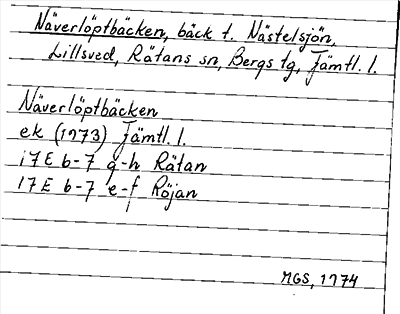 Näverlöptbäcken, bäck t. Nästelsjön,
Lillsved, Rätans sn, Bergs tg, Jämtl. l.
Näverlöptbäcken
ek (1973) Jämtl. l.
17E b-7 g-h Rätan
17E b-7 e-f Röjan
MGS, 1974